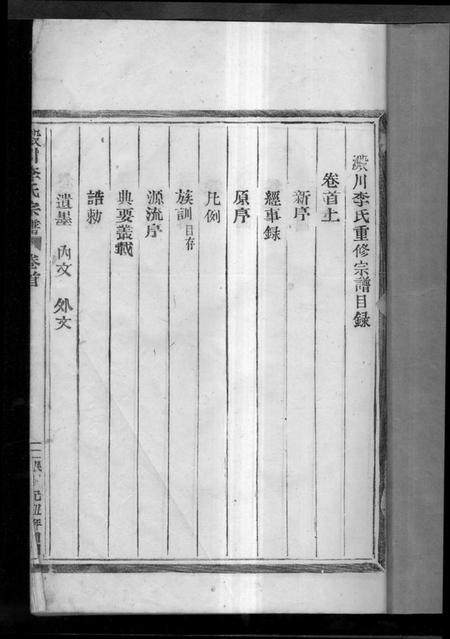 瀫川李氏重修宗譜目録
卷首上
新序
經事録
原序
凡例
族訓目存
源流序
典要叢載
誥勅
遺墨 內文 外文
瀫川李氏宗譜 卷首